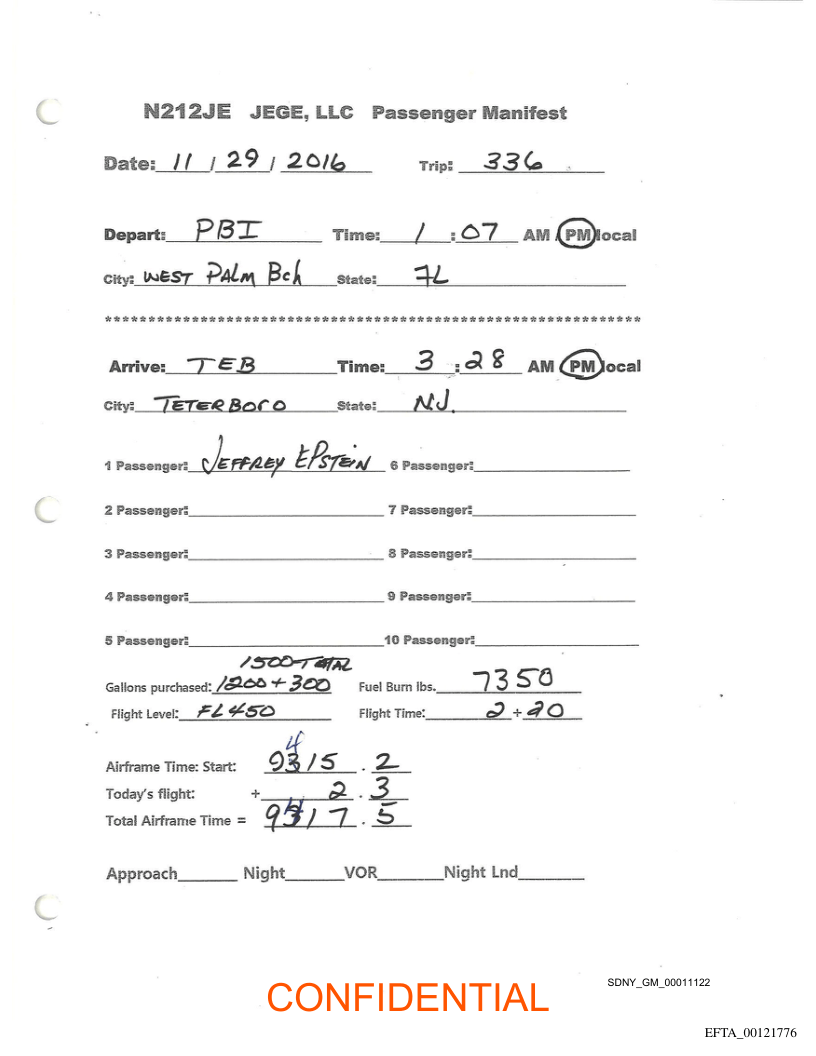 N212JE JEGE, LLC Passenger Manifest
Date: 11 / 29 / 2016 Trip: 336
Depart: PBI Time: 1 : 07 AM / PM local
City: WEST PALM Bch State: FL
**************************************************************
Arrive: TEB Time: 3 : 28 AM / PM local
City: TETERBORO State: NJ.
1 Passenger: JEFFREY EPSTEIN 6 Passenger:
2 Passenger: 7 Passenger:
3 Passenger: 8 Passenger:
4 Passenger: 9 Passenger:
5 Passenger: 10 Passenger:
1500 TOTAL
Gallons purchased: 1200 + 300 Fuel Burn lbs. 7350
Flight Level: FL450 Flight Time: 2 + 20
4
Airframe Time: Start: 9315 . 2
Today's flight: + 2 . 3
Total Airframe Time = 9417 . 5
Approach Night VOR Night Lnd
SDNY_GM_00011122
CONFIDENTIAL
EFTA_00121776